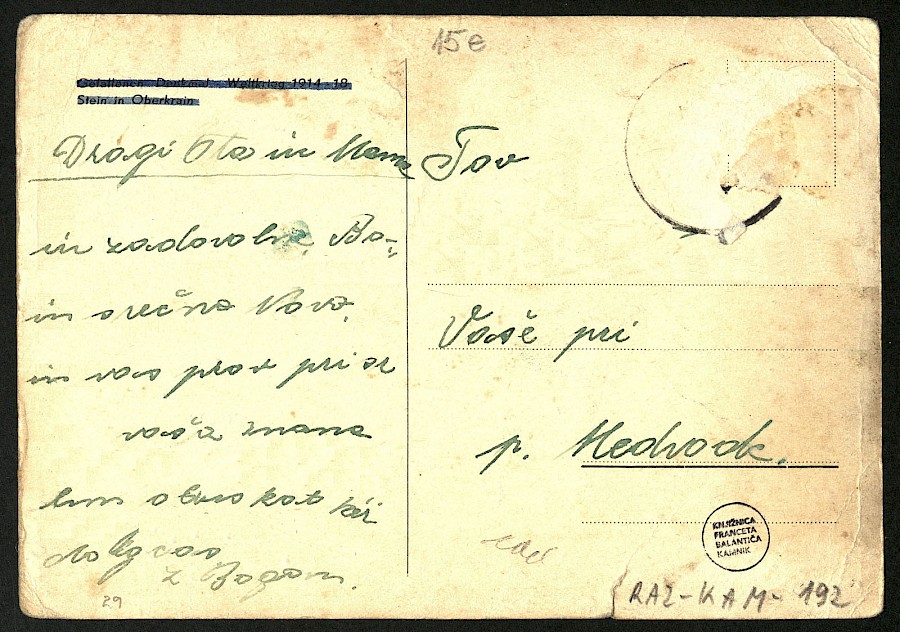 15 e
Gefallenen Denkmal Weltkrieg 1914-18
Stein in Oberkrain
Dragi Ata in Mama
in zadovolne. Bo-
in srečna Nova
in vas prav pri sr
vaša znana
obiskat
dolgcas
z Bogom.
29
Tov
Vaše pri
p. Medvode.
KNJIŽNICA
FRANCETA
BALANTIČA
KAMNIK
RAZ-KAM-192